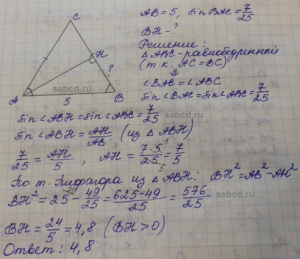 C
H
?
A
5
B
AB = 5, sin BAC = 7/25
BH - ?
Решение:
△ABC - равнобедренный
(т.к. AC = BC)
⇓
∠BAC = ∠ABC
sin BAC = sin ABC = 7/25
sin ∠ABH = sin ∠ABC = 7/25
sin ∠ABH = AH/AB (из △ABH)
7/25 = AH/5, AH = 7·5/25 = 7/5
По т. Пифагора из △ABH: BH² = AB² - AH²
BH² = 25 - 49/25 = 625-49/25 = 576/25
BH = 24/5 = 4,8 (BH > 0)
Ответ: 4,8
sabcd.ru